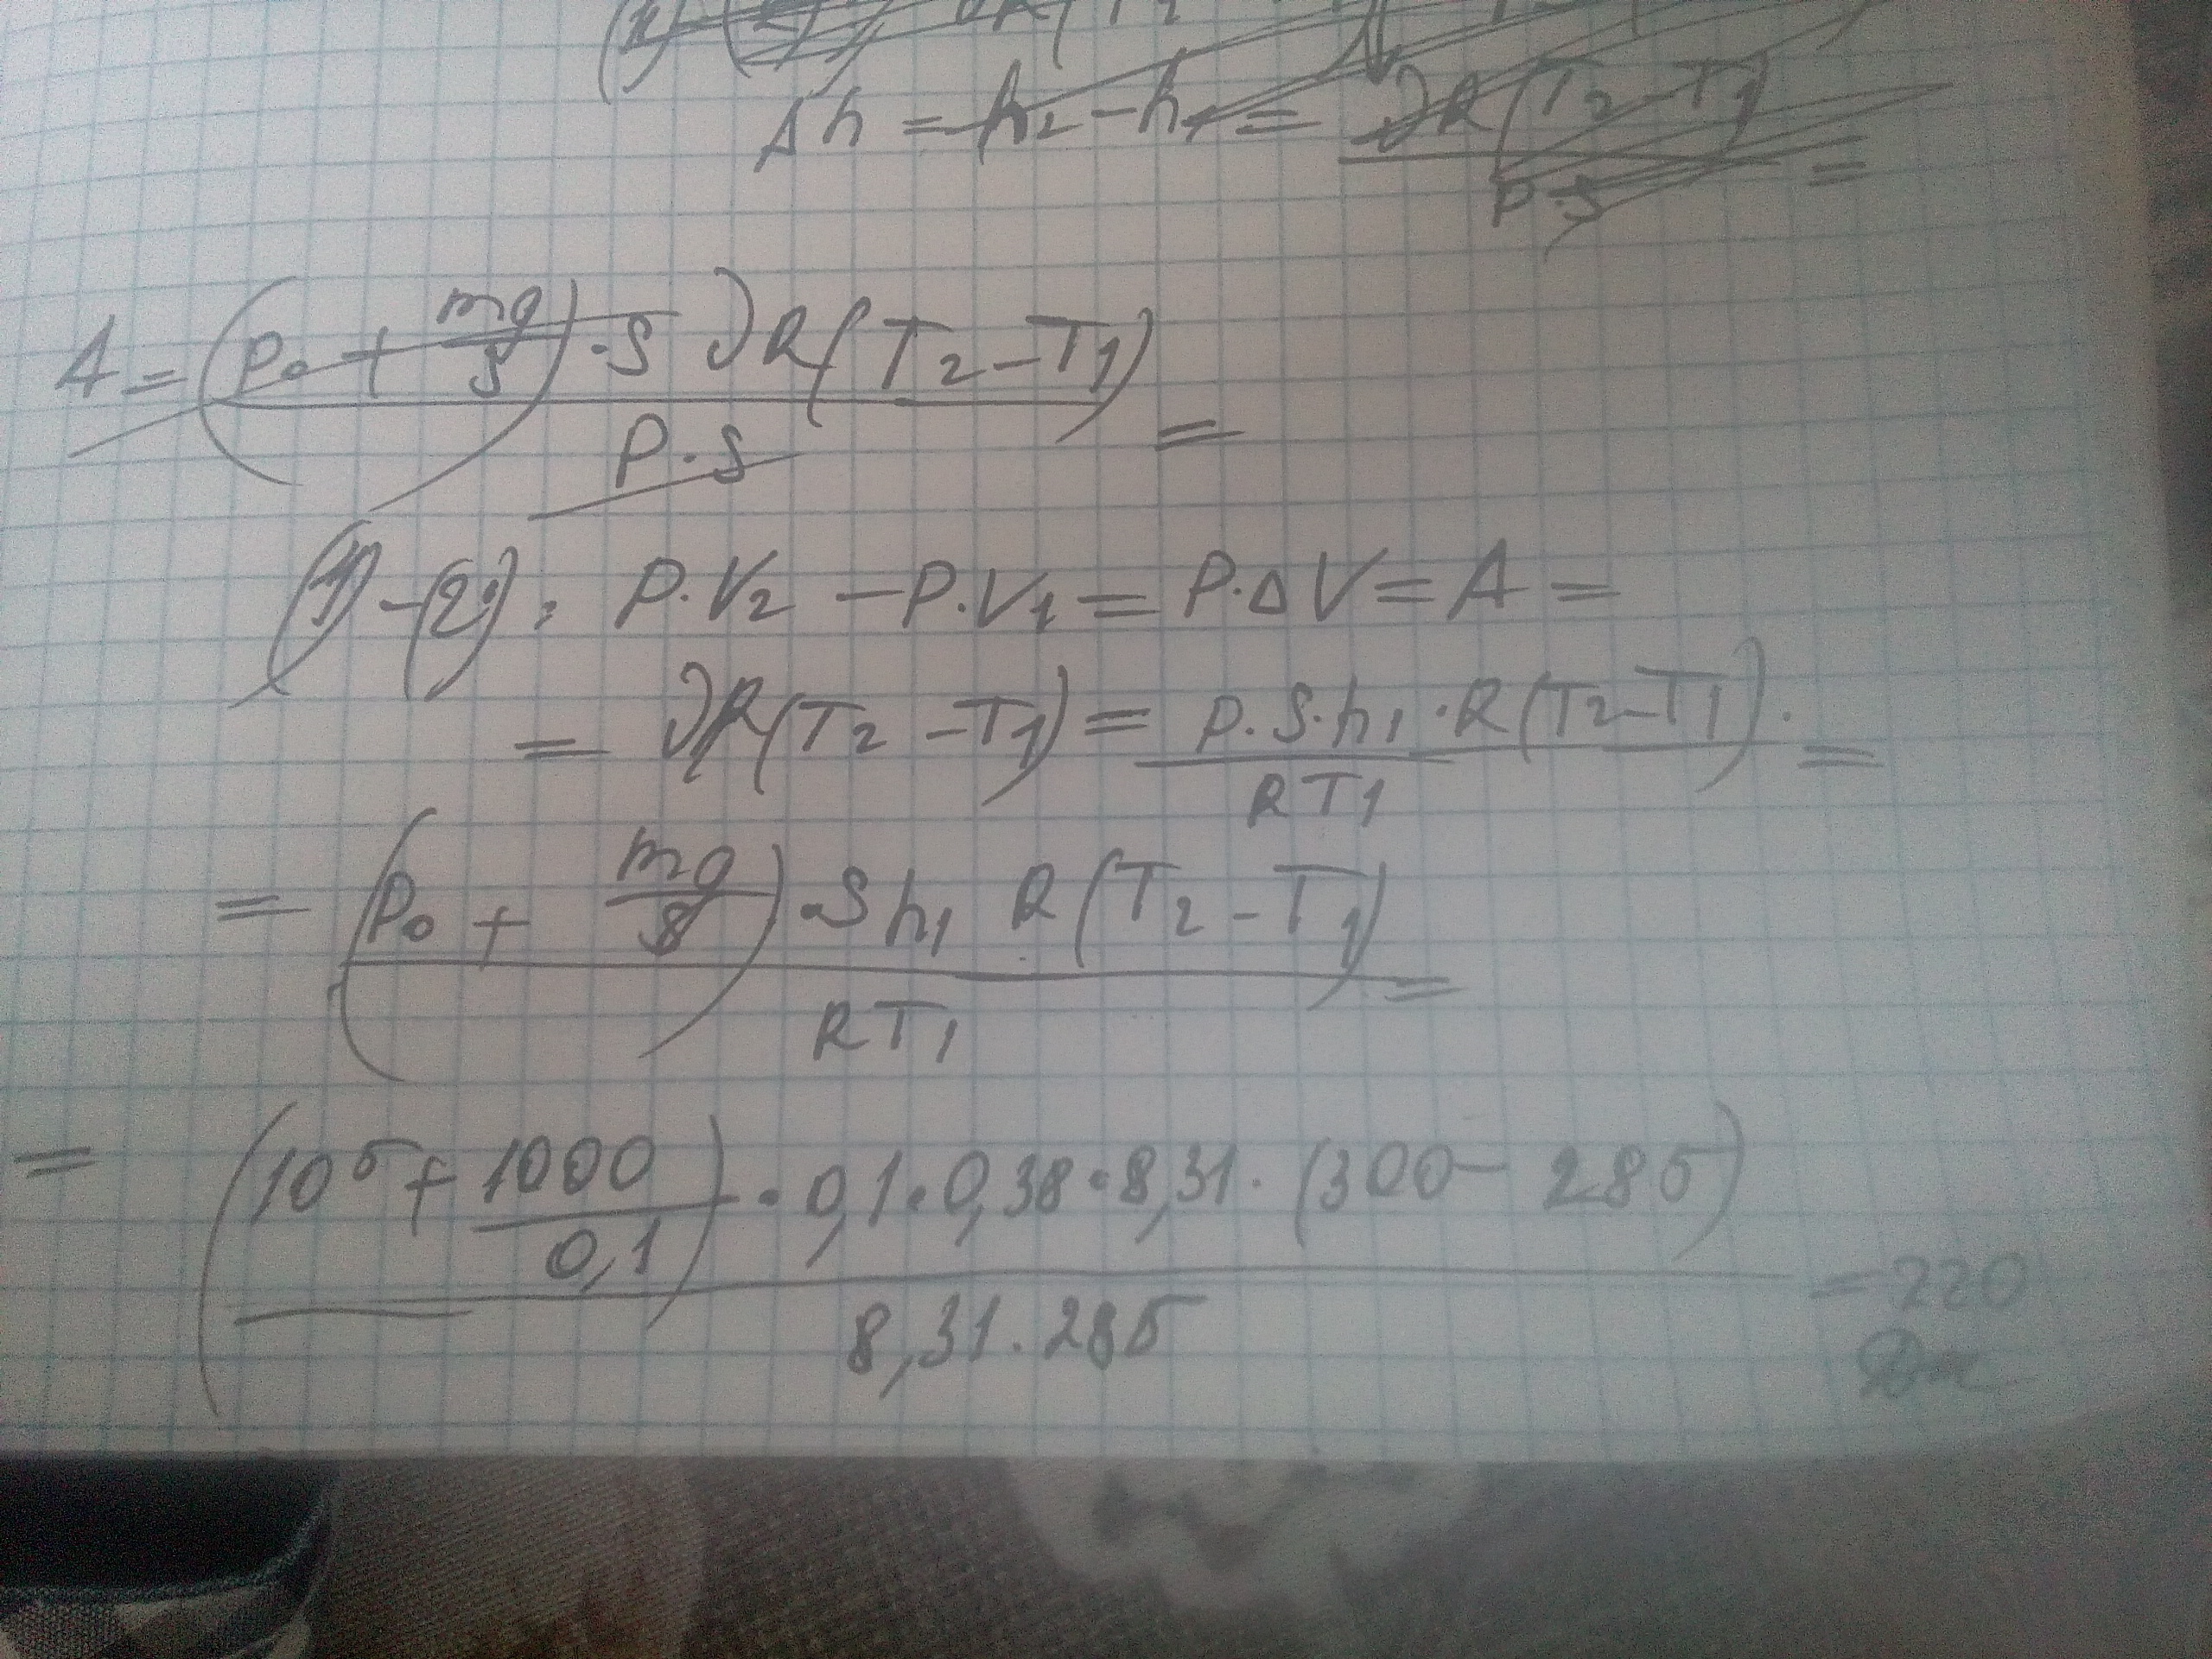 Δh = h₂ - h₁ = νR(T₂ - T₁) / P·S =
A = (P₀ + mg/S)·S νR(T₂ - T₁) / P·S =
(1) - (2): P·V₂ - P·V₁ = P·ΔV = A =
= νR(T₂ - T₁) = P·S·h₁·R(T₂ - T₁) / RT₁ =
= (P₀ + mg/S)·S h₁ R(T₂ - T₁) / RT₁ =
= (10⁵ + 1000/0,1)·0,1·0,38·8,31·(300 - 285) / 8,31·285 = 220 Дж